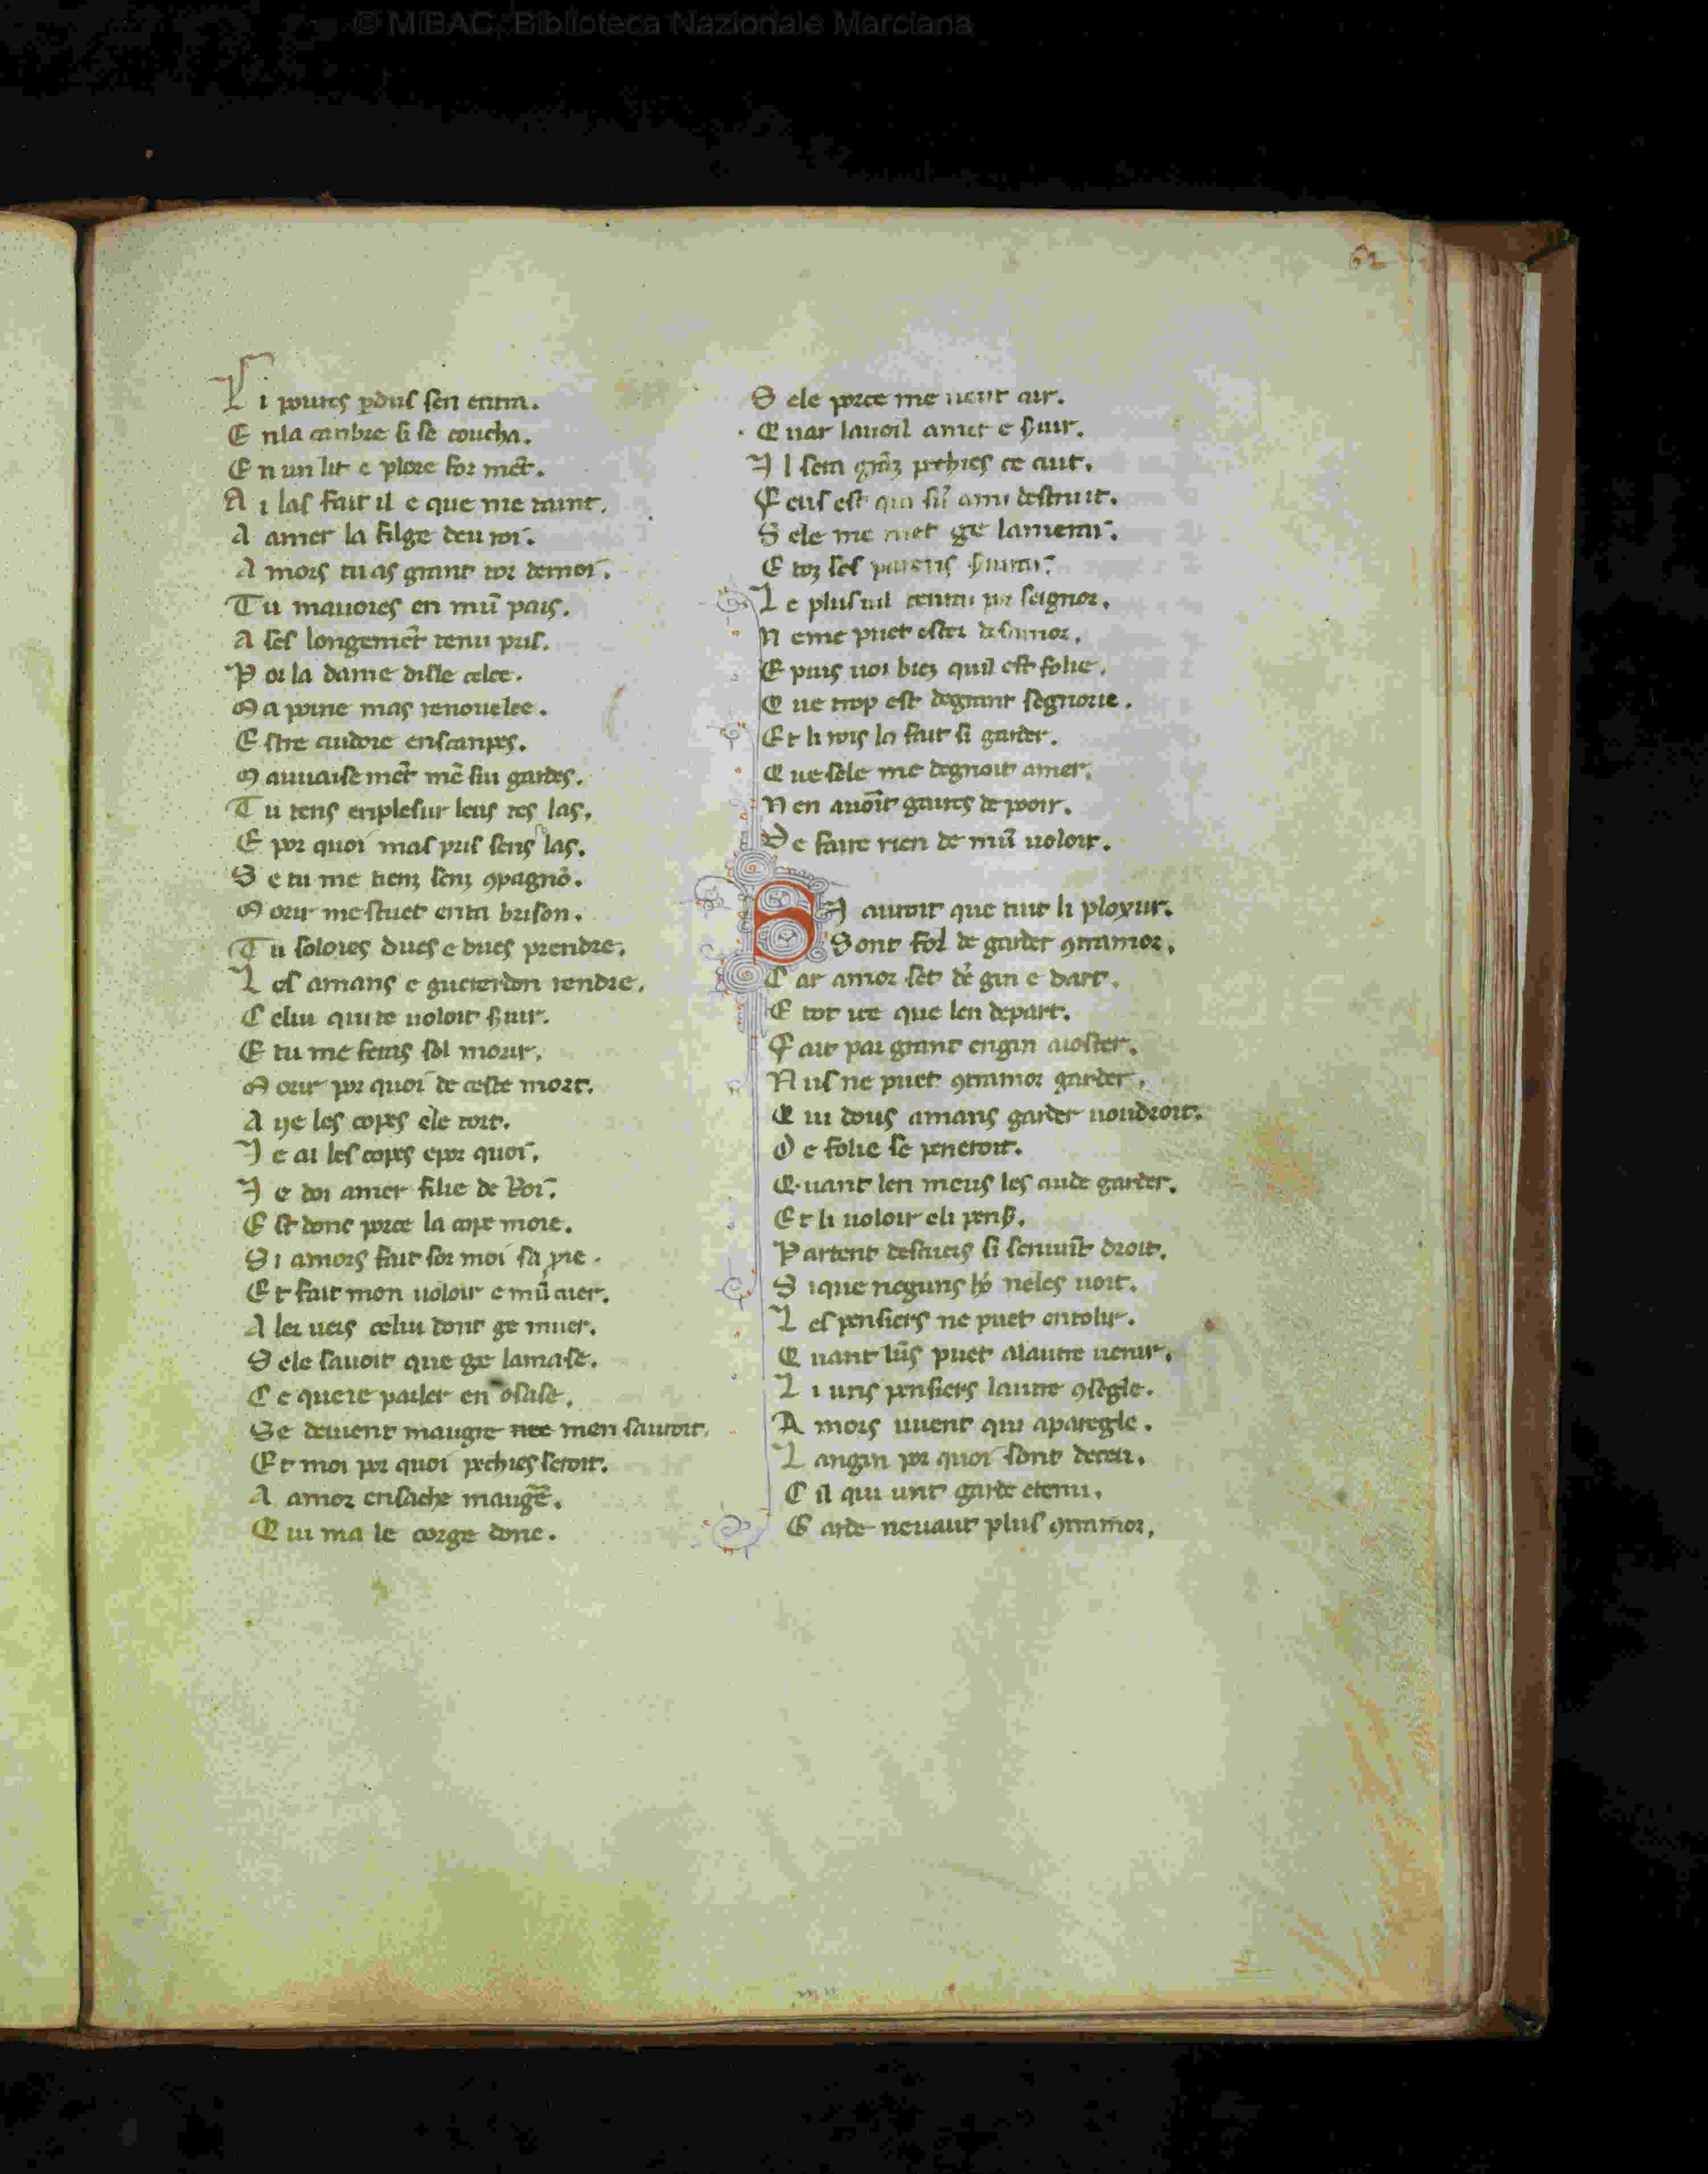 © MiBAC, Biblioteca Nazionale Marciana
62
L i poures ꝑdus sen entra.
E nla canbre si se coucha.
E n un lit e plore for mēt.
A i las fait il e que me taint.
A amer la filge deu roi.
A mors tu as grant tor de moi.
T u mauores en mū pais.
A ses longemēt tenu pris.
P or la dame disle celee.
M a poine mas renouelee.
E stre cuidoie enscanpes.
M auuaisemēt mē sui gardes.
T u tens en plusur leus tes las.
E por quoi mas pris sens las.
S e tu me tienz senz ꝯpagnō.
M orir mestuet en ta brison.
T u soloies dues e dues prendre.
L es amans e gueerdon rendre.
C elui qui te uoloit seruir.
E tu me fetes sol morir.
M orir por quoi de ceste mort.
A ye les copes ele tort.
J e ai les copes e por quoi.
J e doi amer filie de Roi.
E st donc porce la cope moie.
S i amors fait sor moi sa pie.
E t fait mon uoloir e mū cuer.
A ler uers celui dont ge muer.
S ele sauoit que ge lamase.
C e que ie parler en osase.
Se deuient maugre nee men sauroit.
E t moi por quoi pechies seroit.
A amor en sache maugrē.
Q ui ma le corge done.
S ele porce me ueut air.
Q uar lauoil amer e seruir.
J l sera grāz pechies ce cuit.
F eus est qui sū ami destruit.
S ele me met ge lamerai.
E toz ses parens seruirai.
L e plus uil tenrai por seignor.
N eme puet ester de samor.
E puis uoi biez quil est folie.
Q ue trop est degrant segnorie.
E t li rois la fait si garder.
Q ue sele me degnoit amer.
N en auoīt gaires de pooir.
D e faire rien de mū uoloir.
S J auroit que tuit li ployur.
Sont fol de garder ꝯtramor.
C ar amor set dē gin e dart.
E tot ice que len depart.
F ait par grant engin aioster.
N us ne puet ꝯtramor garder.
Q ui dous amans garder uoudroit.
D e folie se peneroit.
Q uant len meus les cuide garder.
E t li uoloir e li penser.
P artent desaueis si senuūt droit.
S ique neguns hō neles uoit.
L es pensiers ne puet on tolir.
Q uant lūs puet alautre uenir.
L i uns pensiers lautre ꝯsegle.
A mors uuent qui aparegle.
L angin por quoi sont deceu.
C il qui unt garde etenu.
G arde neuaut plus ꝯtramor.